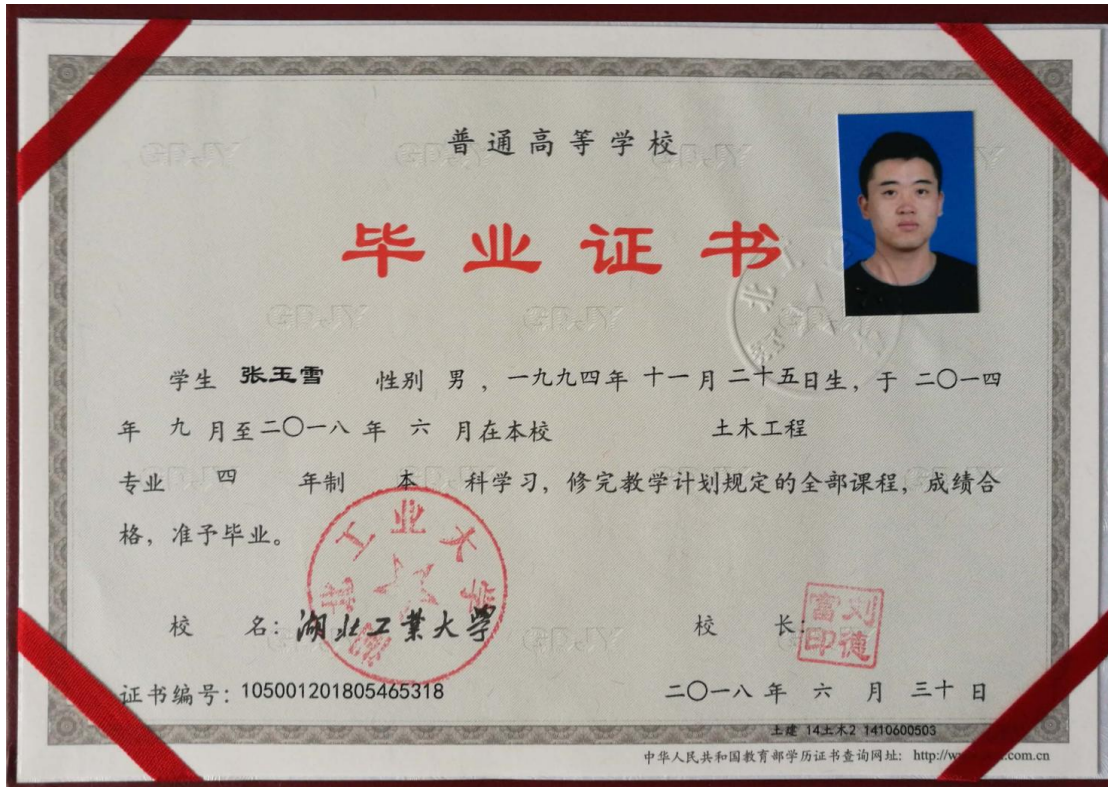 普通高等学校
毕业证书
学生 张玉雪 性别 男 ，一九九四年 十一月 二十五日生，于 二〇一四
年 九 月至二〇一八 年 六 月在本校 土木工程
专业 四 年制 本 科学习，修完教学计划规定的全部课程，成绩合
格，准予毕业。
湖北工业大学
校 名：湖北工業大學 校 长：
刘德富印
证书编号：105001201805465318 二〇一八 年 六 月 三十 日
土建 14土木2 1410600503
中华人民共和国教育部学历证书查询网址： http://w .com.cn
GDJY